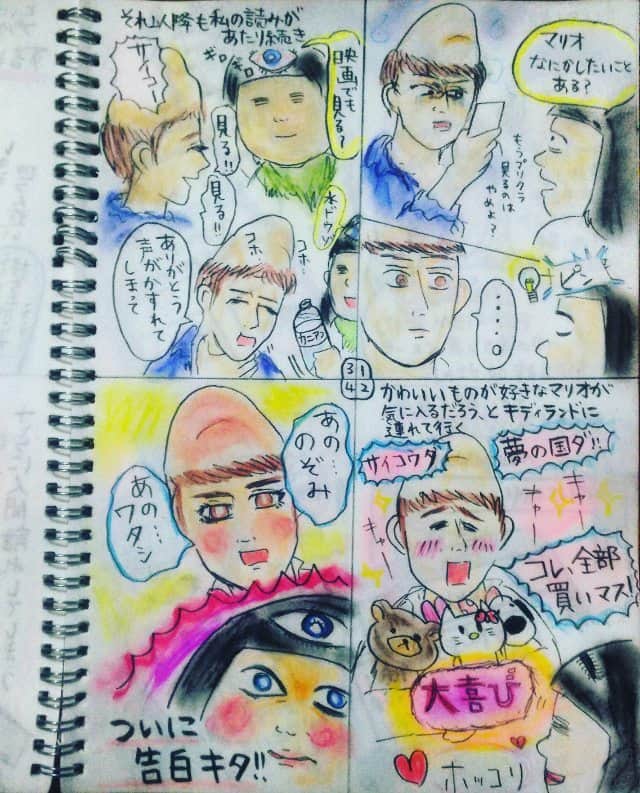 マリオ
なにかしたいこと
ある?
もうプリクラ
見るのは
やめよ?
ピン
・・・・。
31
42
かわいいものが好きなマリオが
気に入るだろう、とキディランドに
連れて行く
夢の国ダ!!
サイコウダ
キャー
キャー
キャー
コレ、全部
買いマス!
大喜び
ホッコリ
それ以降も私の読みが
あたり続き
ギロ
映画でも
見る?
見る!!
見る!!
サイコー
水ドウゾ
コホ…
コホ
カニアン
ありがとう
声がかすれて
しまって
あの…
のぞみ
あの…
ワタシ
ついに
告白キタ!!